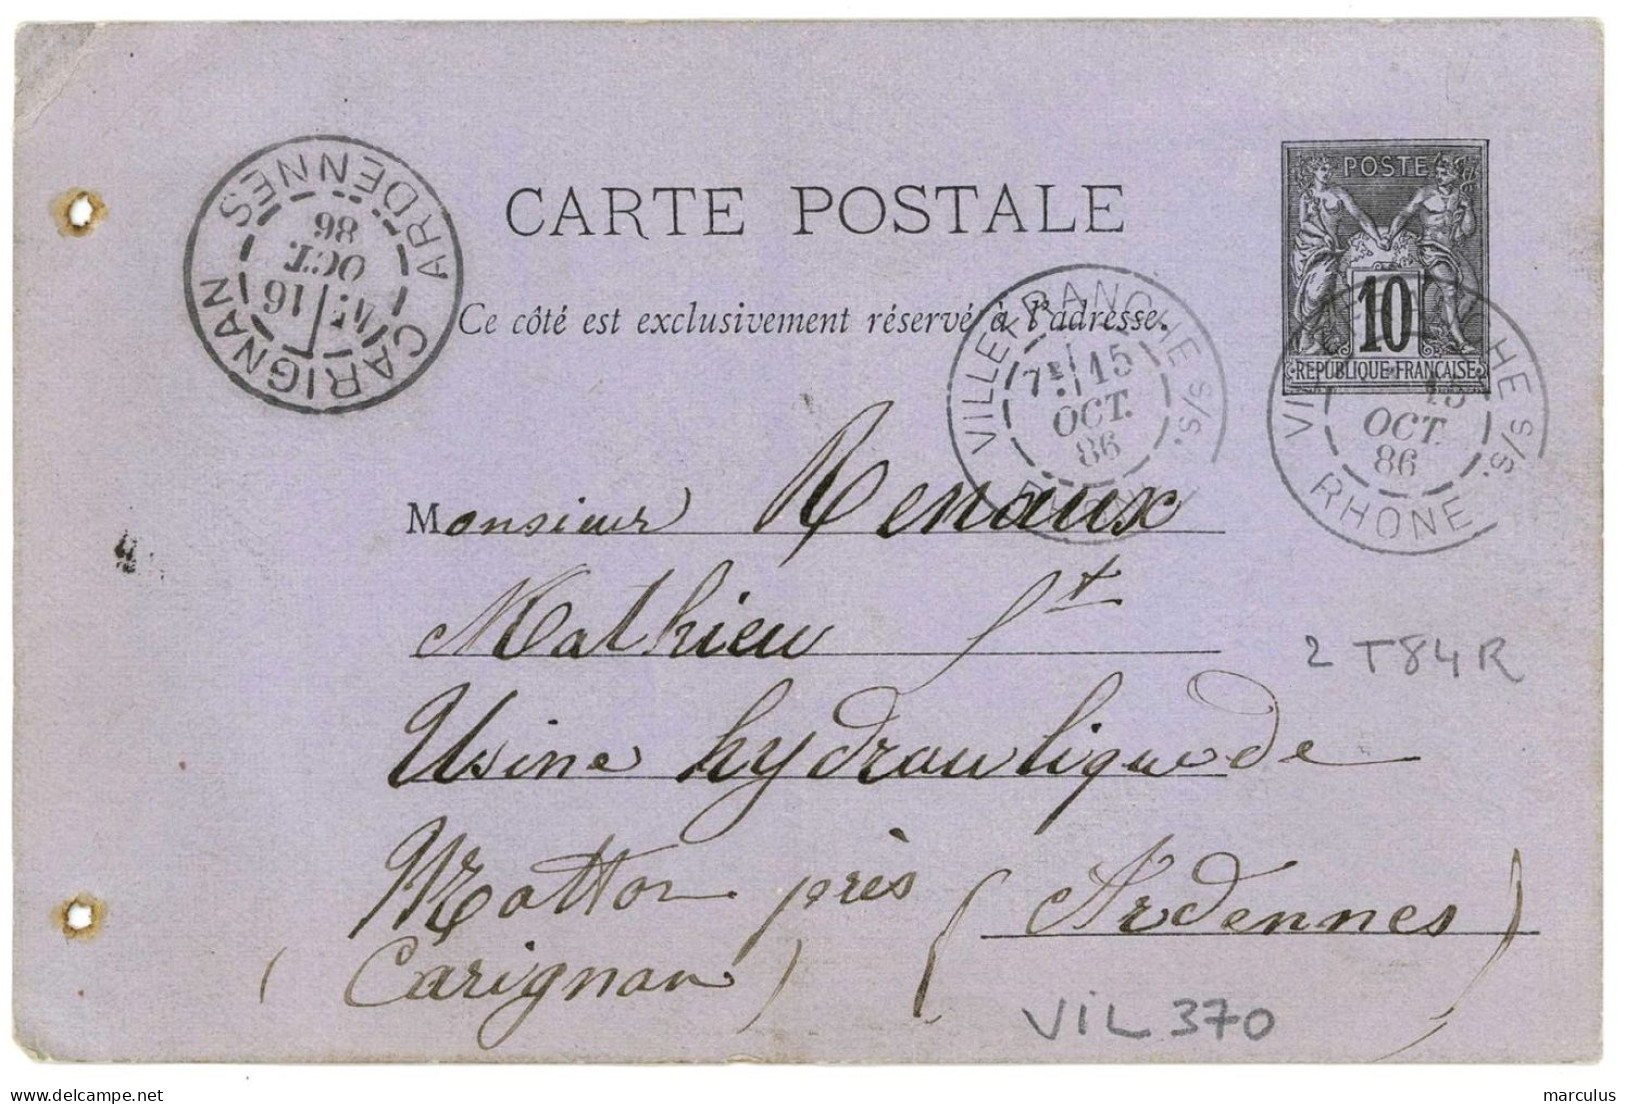 CARTE POSTALE
Ce côté est exclusivement réservé à l'adresse.
POSTE
10
REPUBLIQUE FRANÇAISE
CARIGNAN ARDENNES
16
OCT.
86
VILLEFRANCHE S/S.
7E 15
OCT.
86
VILLEFRANCHE S/S. RHONE
15
OCT.
86
Monsieur Renaux
Mathieu St
Usine hydraulique de
Matton près (Ardennes)
(Carignan)
2 T84R
VIL 370
marculus